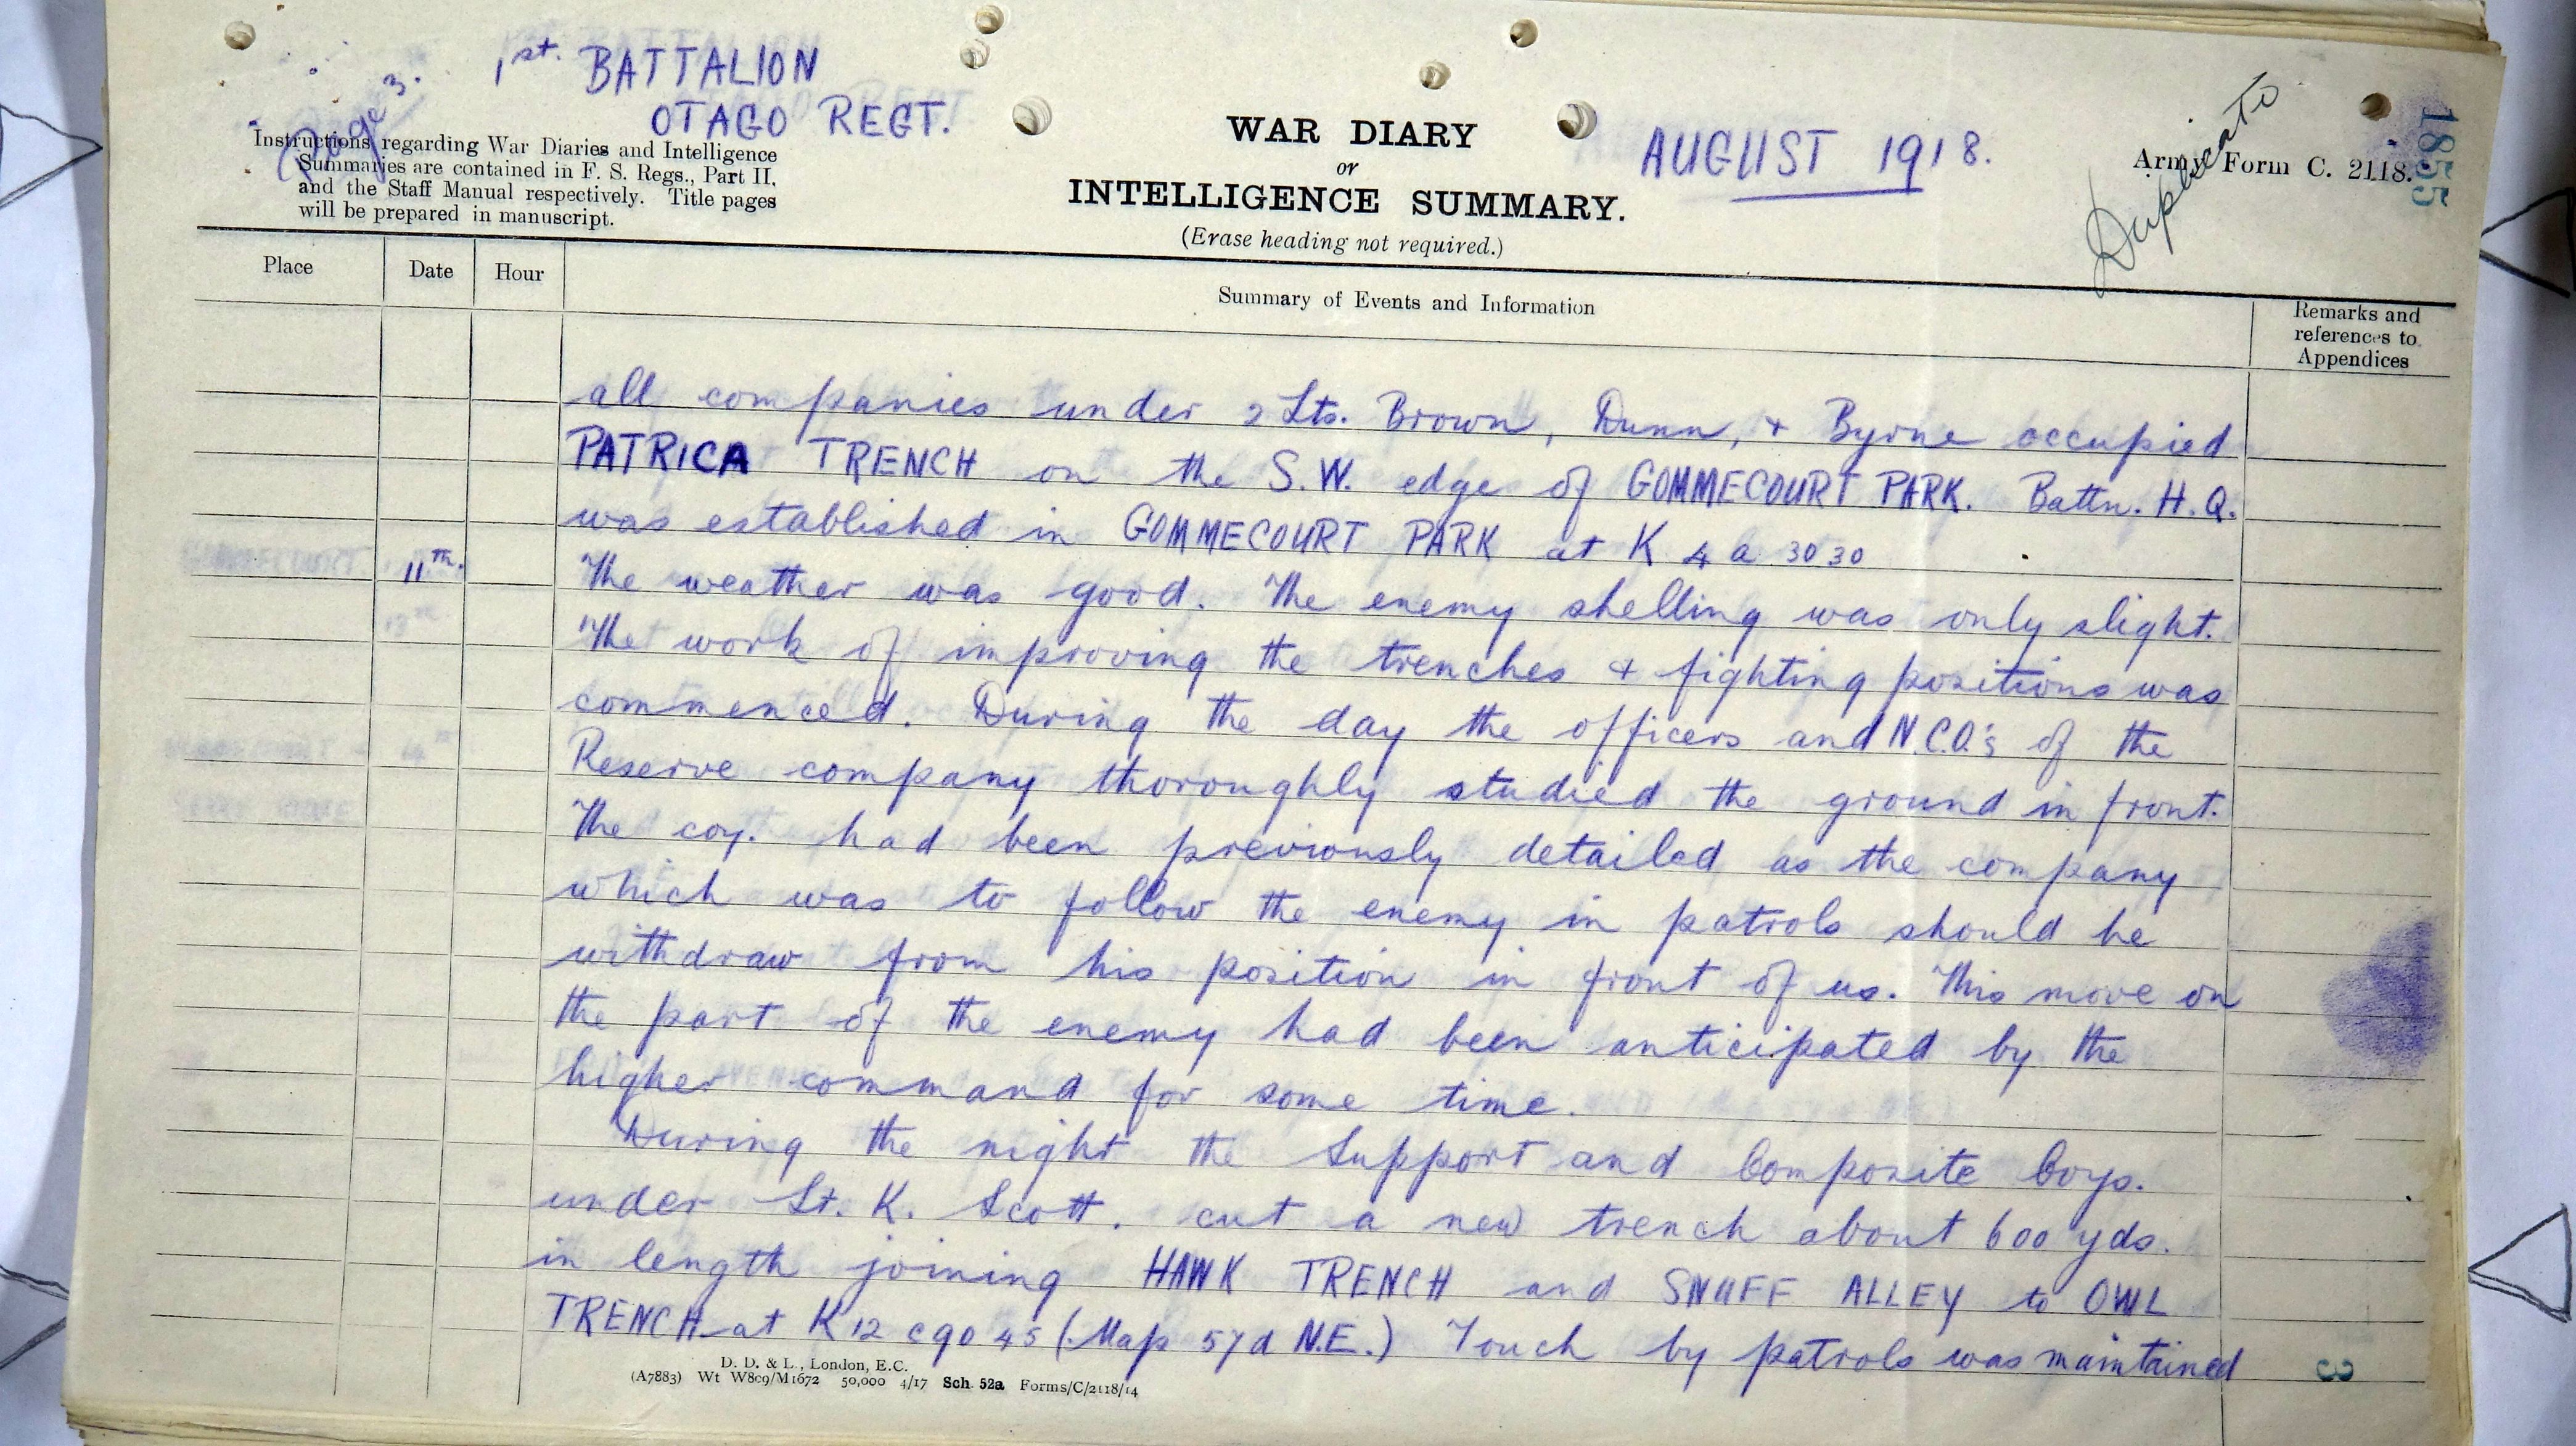 Page 3.
1st. BATTALION
OTAGO REGT.
Instructions regarding War Diaries and Intelligence
Summaries are contained in F. S. Regs., Part II,
and the Staff Manual respectively. Title pages
will be prepared in manuscript.
WAR DIARY
or
INTELLIGENCE SUMMARY.
(Erase heading not required.)
AUGUST 1918.
Duplicate
Army Form C. 2118.
1855
Place Date Hour
Summary of Events and Information
Remarks and
references to
Appendices
all companies under 2 Lts. Brown, Dunn, & Byrne occupied
PATRICA TRENCH on the S.W. edge of GOMMECOURT PARK. Battn. H.Q.
was established in GOMMECOURT PARK at K 4 a 30 30
11th. The weather was good. The enemy shelling was only slight.
The work of improving the trenches & fighting positions was
commenced. During the day the officers and N.C.O.'s of the
Reserve company thoroughly studied the ground in front.
The coy. had been previously detailed as the company
which was to follow the enemy in patrols should he
withdraw from his position in front of us. This move on
the part of the enemy had been anticipated by the
higher command for some time.
During the night the Support and Composite Coys.
under Lt. K. Scott. cut a new trench about 600 yds.
in length joining HAWK TRENCH and SNUFF ALLEY to OWL
TRENCH at K 12 c 90 45 (Map 57d N.E.) Touch by patrols was maintained
D. D. & L., London, E.C.
(A7883) Wt W809/M1672 50,000 4/17 Sch. 52a Forms/C/2118/14
3